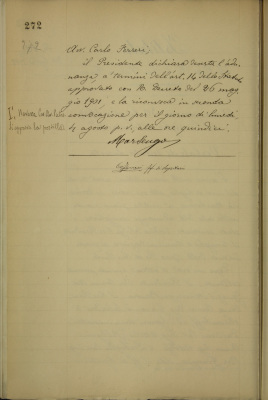 272
272
Avv. Carlo Ferreri,
il Presidente dichiara deserta l'adu-
nanza a' termini dell'art. 14 dello Statuto
approvato con R. Decreto del 26 mag-
gio 1901, e la riconvoca in seconda
convocazione per il giorno di lunedì
4 agosto p. v. alle ore quindici.
si approva la postilla